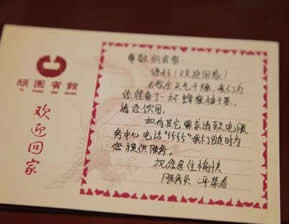 頤園賓館
YI YUAN BIN GUAN
欢迎回家
尊敬的宾客:
您好!欢迎回家!
天气干燥,我们为
您准备了一杯蜂蜜柚子茶,
请您饮用。
如有其它需求请致电服
务中心电话"5555"我们随时为
您提供服务。
祝您居住愉快
服务员